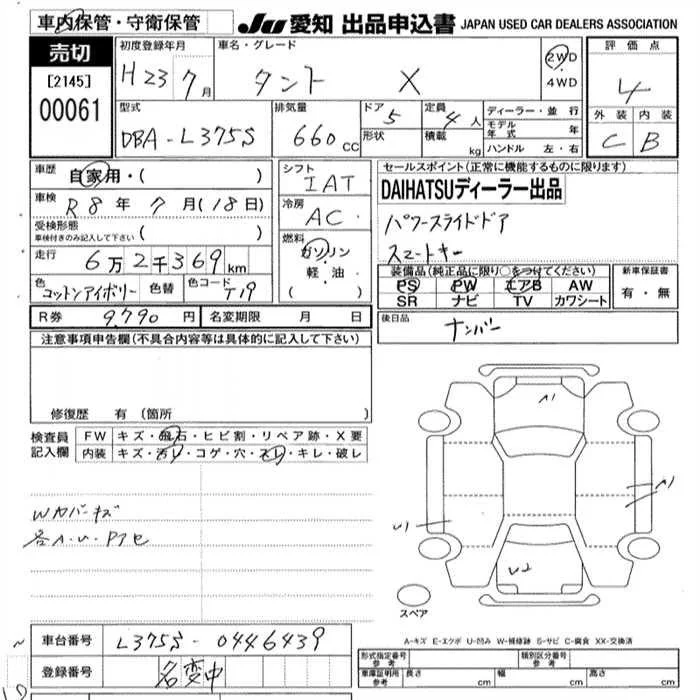 車内保管・守衛保管 JU 愛知 出品申込書 JAPAN USED CAR DEALERS ASSOCIATION
売切
[2145]
00061
初度登録年月 車名・グレード
H23 7月 タント X
2WD
4WD
評価点
4
外装 内装
C B
型式 排気量 ドア 定員
DBA-L375S 660cc 5 4人
形状 積載 kg
ディーラー・並行
モデル年式 年
ハンドル 左・右
車歴 自家用・( )
車検 R8年7月(18日)
受検形態
車検付きのみ記入して下さい ( )
走行 6万2千369km
色 コットンアイボリー 色替 色コード T19
シフト
IAT
冷房
AC
燃料
ガソリン
軽・油
( )
R券 9,790円 名変期限 月 日
セールスポイント(正常に機能するものに限ります)
DAIHATSUディーラー出品
パワースライドドア
スマートキー
装備品(純正品に限り○をつけてください)
PS PW エアB AW
SR ナビ TV カワシート
新車保証書
有・無
後日品
ナンバー
注意事項申告欄(不具合内容等は具体的に記入して下さい)
修復歴 有(箇所 )
検査員記入欄
FW キズ・飛石・ヒビ割・リペア跡・X要
内装 キズ・汚レ・コゲ・穴・スレ・キレ・破レ
Wカバーキズ
各A・U・Pアセ
A1
A1
U1
U2
スペア
A-キズ E-エクボ U-凹み W-補修跡 S-サビ C-腐食 XX-交換済
車台番号 L375S-0446439
登録番号 名変中
形式指定番号
参考
類別区分番号
参考
車庫証明用
参考
長さ cm 幅 cm 高さ cm